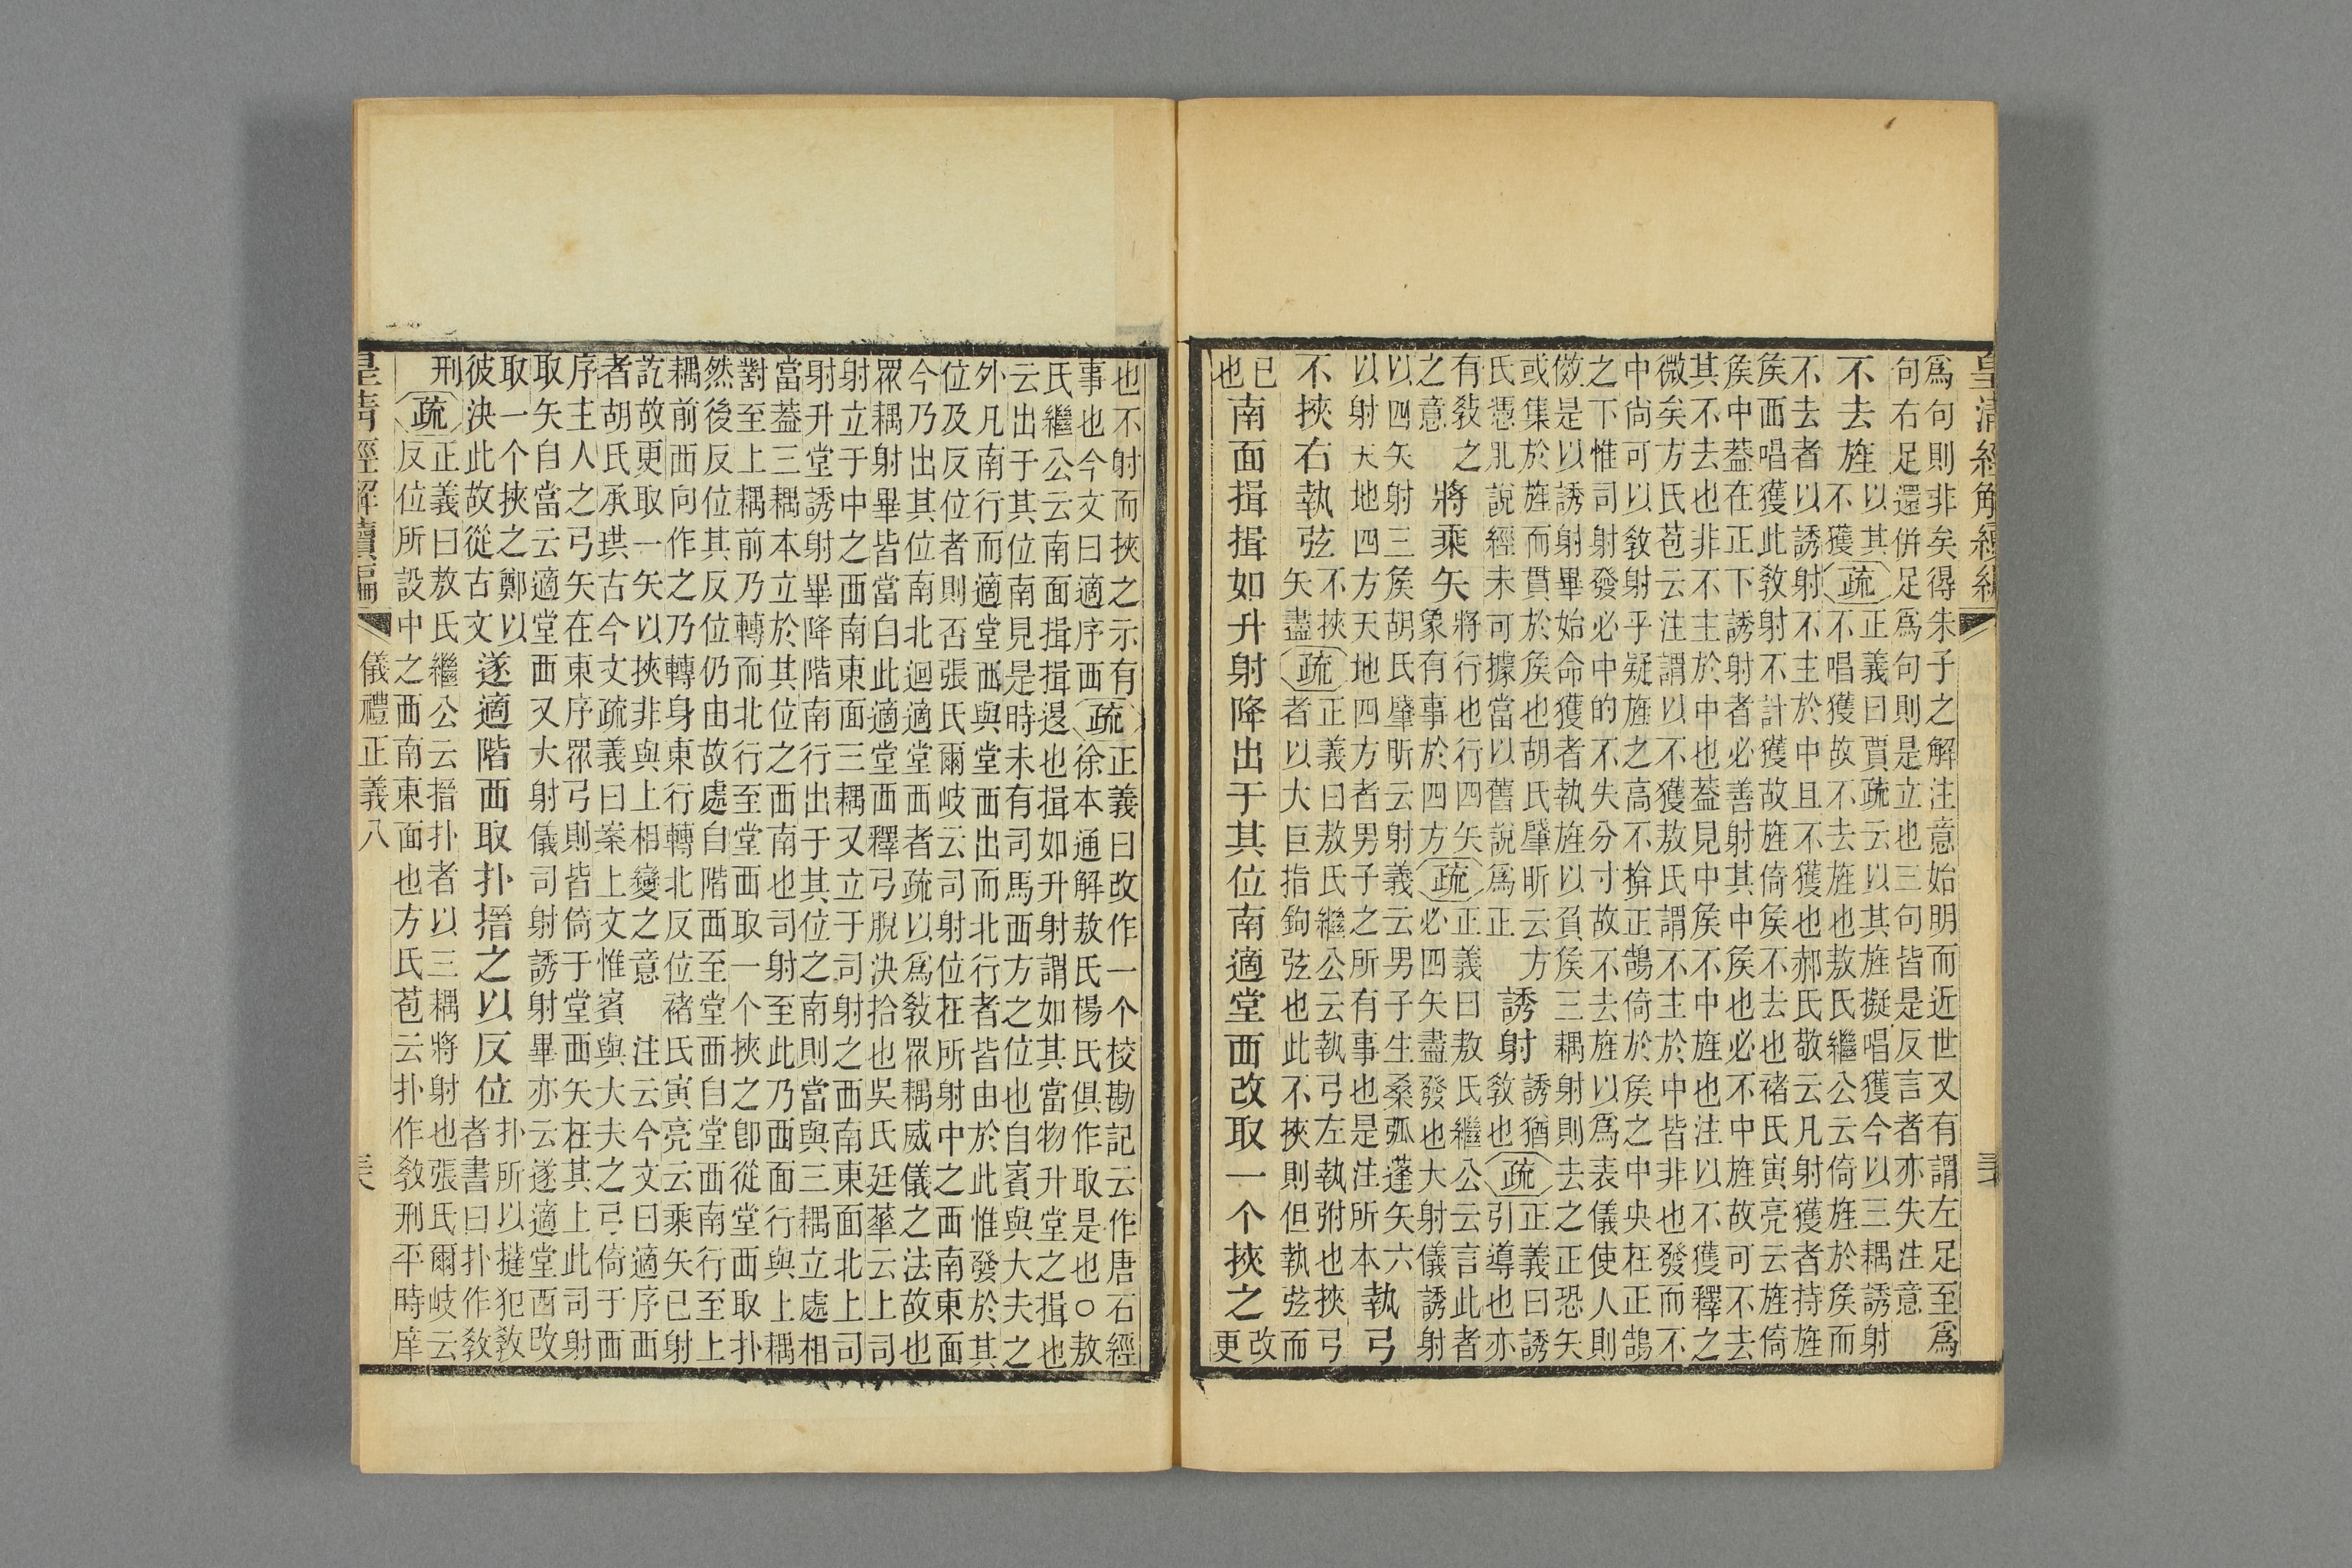 皇清經解續編
爲句則非矣得朱子之解注意始明而近世又有謂左足至爲
句右足還併足爲句則是立也三句皆是反言者亦失注意
不去旌以其不獲疏正義曰賈疏云以其旌擬唱獲今以三耦誘射
不唱獲故不去旌也敖氏繼公云倚旌於矦而
不去者以誘射不主於中且不獲也郝氏敬云凡射獲者持旌
矦西唱獲此敎射不計獲故旌倚矦不去也褚氏寅亮云旌倚
矦中葢在正下誘射者必善射其中矦也必不中旌故可不去
其不去也非不主於中也葢見中矦不中旌也注以不獲釋之
微矣方氏苞云注謂以不獲敖氏謂不主於中皆非也發而不
中尚可以敎射乎疑旌之高不揜正鵠倚於矦之中央在正鵠
之下惟司射發必中的不失分寸故不去旌以爲表儀使人則
傚是以誘射畢始命獲者執旌以負矦三耦射則去之正恐矢
或集於旌而貫於矦也胡氏肇昕云方
氏憑肊說經未可據當以舊說爲正誘射誘猶敎也疏正義曰誘引導也亦
有敎之之意將乘矢將行也行四矢象有事於四方疏正義曰敖氏繼公云言此者
必四矢盡發也大射儀誘射
以四矢射三矦胡氏肇昕云射義云男子生桑弧蓬矢六
以射天地四方天地四方者男子之所有事也是注所本執弓
不挾右執弦不挾矢盡疏正義曰敖氏繼公云執弓左執弣也挾弓
者以大巨指鉤弦也此不挾則但執弦而
已也南面揖揖如升射降出于其位南適堂西改取一个挾之改更
也不射而挾之示有事也今文曰適序西疏正義曰改作一个校勘記云作唐石經
徐本通解敖氏楊氏俱作取是也○敖
氏繼公云南面揖揖退也揖如升射謂如其當物升堂之揖也
云出于其位南見是時未有司馬西方之位也自賓與大夫之
外凡南行而適堂西與堂西出而北行者皆由於此惟發於其
位及反位者則否張氏爾岐云司射位在所射中之西南東面
今乃出其位南北迴適堂西者疏以爲敎眾耦威儀之法故也
眾耦射畢皆當自此適堂西釋弓脫決拾也吳氏廷華云上司
射立于中之西南東面三耦又立于司射之西南東面北上司
射升堂誘射畢降階南行出于其位之南則當與三耦立處相
當葢三耦本立於其位之西南也司射至此乃西面行與上耦
對至上耦前乃轉而北行至堂西取一个挾之卽從堂西取扑
然後反位其反位仍由故處自階西至堂西自堂西南行至上
耦前西向作之乃轉身東行轉北反位褚氏寅亮云乘矢已射
訖故更取一矢以挾非與上相變之意注云今文曰適序西
者胡氏承珙古今文疏義曰案上文惟賓與大夫之弓倚于西
序主人之弓矢在東序眾弓則皆倚于堂西矢在其上此司射
取矢自當云適堂西又大射儀司射誘射畢亦云遂適堂西改
取一个挾之鄭以彼決此故從古文遂適階西取扑搢之以反位扑所以撻犯敎者書曰扑作敎
刑疏正義曰敖氏繼公云搢扑者以三耦將射也張氏爾岐云
反位所設中之西南東面也方氏苞云扑作敎刑平時庠
皇清經解續編
儀禮正義八